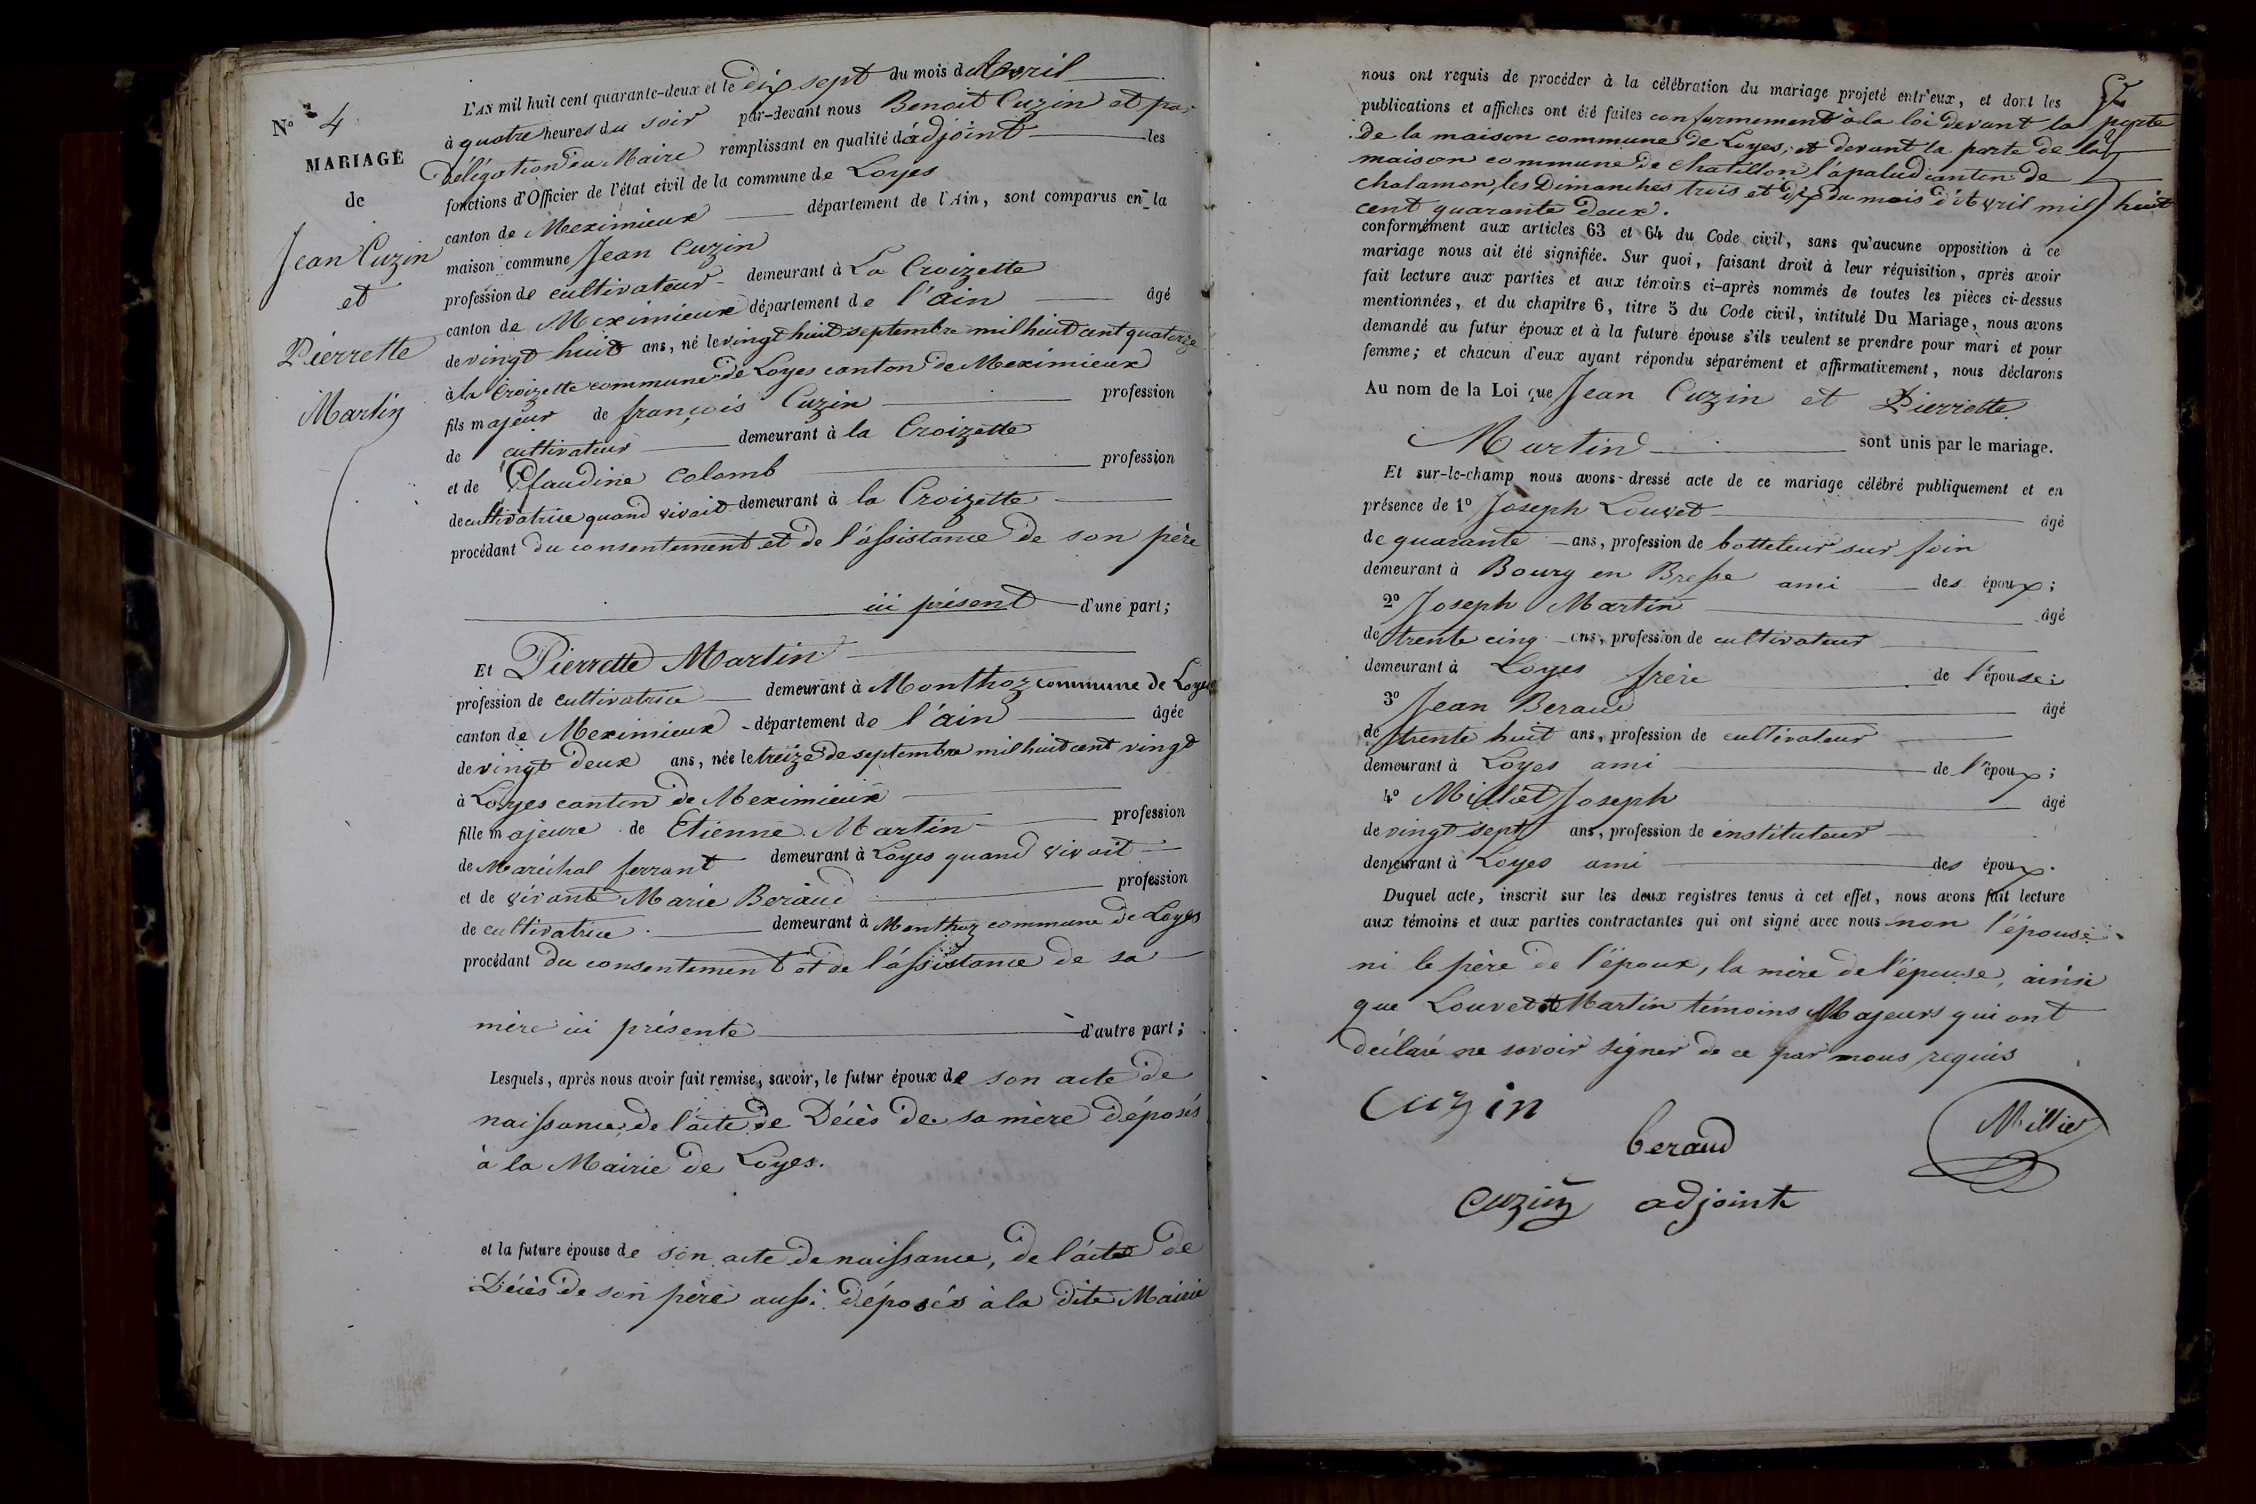 N° 4
MARIAGE
de
Jean Cuzin
et
Pierrette
Martin
L'AN mil huit cent quarante-deux et le dix sept du mois d'Avril
à quatre heures du soir par-devant nous Benoit Cuzin et par
délégation du Maire remplissant en qualité d'adjoint les
fonctions d'Officier de l'état civil de la commune de Loyes
canton de Meximieux département de l'Ain, sont comparus en la
maison commune Jean Cuzin
profession de cultivateur demeurant à La Croizette
canton de Meximieux département de l'ain âgé
de vingt huit ans, né le vingt huit septembre mil huit cent quatorze
à la Croizette commune de Loyes canton de Meximieux
fils majeur de françois Cuzin profession
de cultivateur demeurant à la Croizette
et de Claudine Colomb profession
de cultivatrice quand vivait demeurant à la Croizette
procédant du consentement et de l'assistance de son père
ici présent d'une part;
Et Pierrette Martin
profession de cultivatrice demeurant à Monthoz commune de Loyes
canton de Meximieux département de l'ain âgée
de vingt deux ans, née le treize de septembre mil huit cent vingt
à Loyes canton de Meximieux
fille majeure de Etienne Martin profession
de Maréchal ferrant demeurant à Loyes quand vivait
et de vivante Marie Beraud profession
de cultivatrice demeurant à Monthoz commune de Loyes
procédant du consentement et de l'assistance de sa
mère ici présente d'autre part;
Lesquels, après nous avoir fait remise, savoir, le futur époux de son acte de
naissance, de l'acte de Décès de sa mère déposés
à la Mairie de Loyes.
et la future épouse de son acte de naissance, de l'acte de
Décès de son père aussi déposés à la dite Mairie
nous ont requis de procéder à la célébration du mariage projeté entr'eux, et dont les
publications et affiches ont été faites conformement à la loi devant la porte
de la maison commune de Loyes, et devant la porte de la
maison commune de chatillon lapalud canton de
chalamon, les Dimanches trois et dix du mois d'Avril mil huit
cent quarante deux.
conformément aux articles 63 et 64 du Code civil, sans qu'aucune opposition à ce
mariage nous ait été signifiée. Sur quoi, faisant droit à leur réquisition, après avoir
fait lecture aux parties et aux témoins ci-après nommés de toutes les pièces ci-dessus
mentionnées, et du chapitre 6, titre 5 du Code civil, intitulé Du Mariage, nous avons
demandé au futur époux et à la future épouse s'ils veulent se prendre pour mari et pour
femme; et chacun d'eux ayant répondu séparément et affirmativement, nous déclarons
Au nom de la Loi que Jean Cuzin et Pierrette
Martin sont unis par le mariage.
Et sur-le-champ nous avons dressé acte de ce mariage célébré publiquement et en
présence de 1° Joseph Louvet âgé
de quarante ans, profession de botteleur sur foin
demeurant à Bourg en Bresse ami des époux;
2° Joseph Martin âgé
de trente cinq ans, profession de cultivateur
demeurant à Loyes frère de l'épouse;
3° Jean Beraud âgé
de trente huit ans, profession de cultivateur
demeurant à Loyes ami de l'époux;
4° Milliet Joseph âgé
de vingt sept ans, profession de instituteur
demeurant à Loyes ami des époux.
Duquel acte, inscrit sur les deux registres tenus à cet effet, nous avons fait lecture
aux témoins et aux parties contractantes qui ont signé avec nous non l'épouse
ni le père de l'époux, la mère de l'épouse, ainsi
que Louvet et Martin témoins Majeurs qui ont
déclaré ne savoir signer de ce par nous requis
Cuzin
beraud
Milliet
Cuzin adjoint